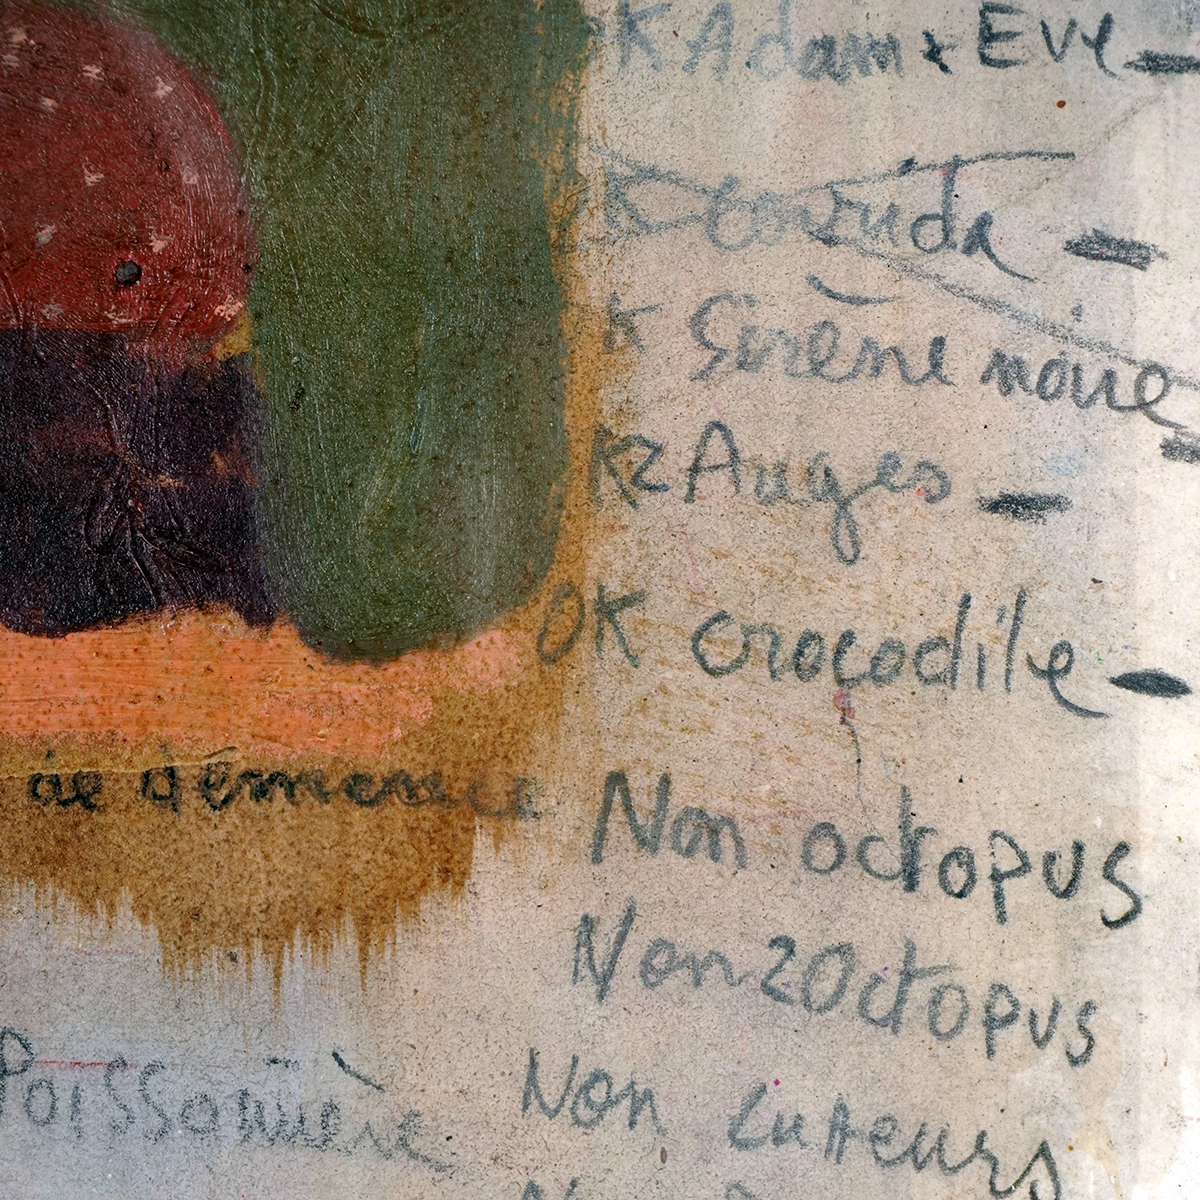 OK Adam & Eve -
K corrida -
K Sirène noire -
K2 Auges -
OK crocodile -
de démence
Non octopus
Non 2 Octopus
Poissonnière
Non Lutteurs